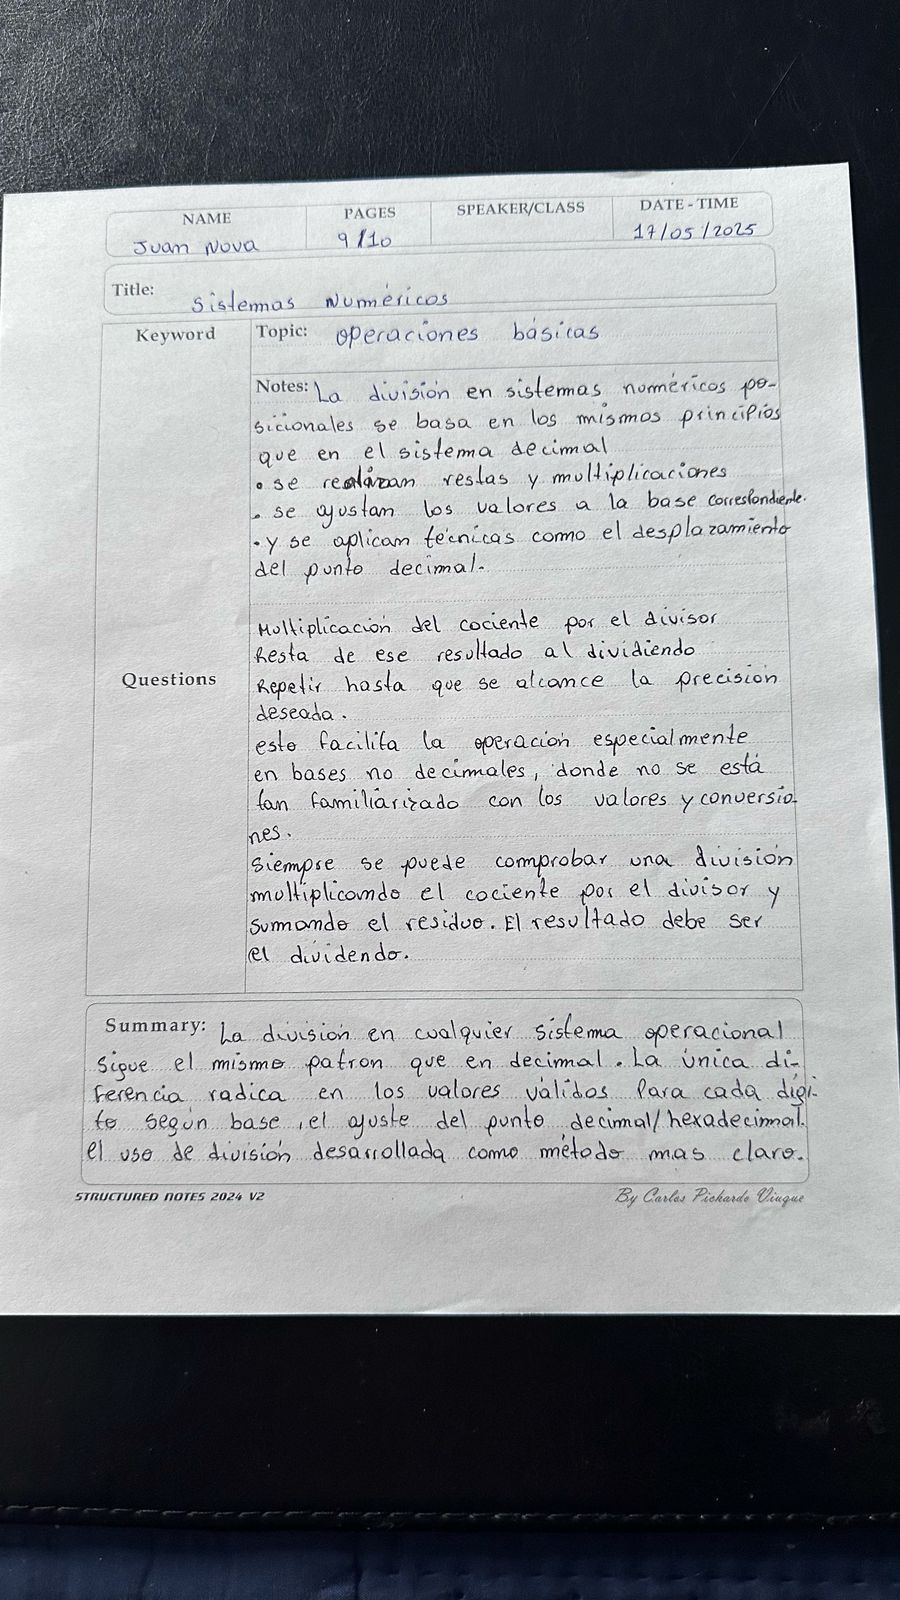 NAME PAGES SPEAKER/CLASS DATE - TIME
Juan Nova 9/10 17/05/2025
Title: Sistemas Numéricos
Keyword Topic: operaciones básicas
Notes: La división en sistemas numéricos po-
sicionales se basa en los mismos principios
que en el sistema decimal
• se realizan restas y multiplicaciones
• se ajustan los valores a la base correspondiente.
• y se aplican técnicas como el desplazamiento
del punto decimal.
Multiplicación del cociente por el divisor
Resta de ese resultado al dividiendo
Questions Repetir hasta que se alcance la precisión
deseada.
esto facilita la operación especialmente
en bases no decimales, donde no se está
tan familiarizado con los valores y conversio-
nes.
Siempre se puede comprobar una división
multiplicando el cociente por el divisor y
sumando el residuo. El resultado debe ser
el dividendo.
Summary: La división en cualquier sistema operacional
sigue el mismo patron que en decimal. La única di-
ferencia radica en los valores válidos para cada dígi-
to según base, el ajuste del punto decimal/hexadecimal.
el uso de división desarrollada como método mas claro.
STRUCTURED NOTES 2024 V2 By Carlos Pichardo Viuque